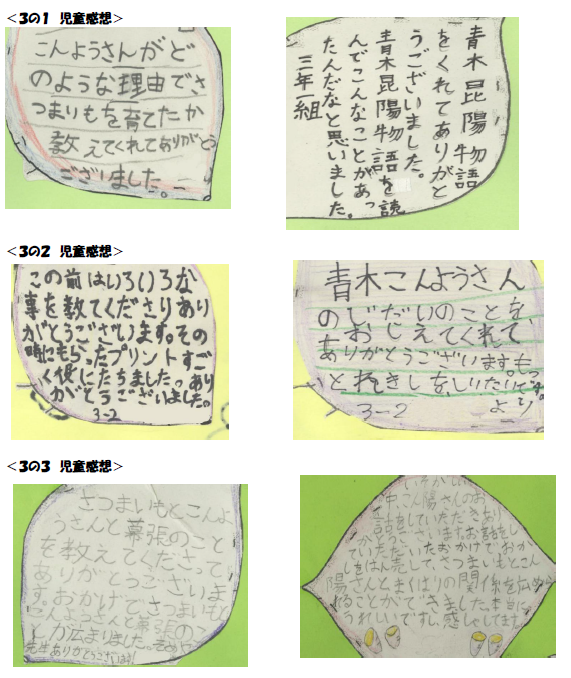 ＜3の1 児童感想＞
こんようさんがど
のような理由でさ
つまりもを育てたか
教えてくれてありがとう
ございました。
青木昆陽物語
をくれてありがと
うございました。
青木昆陽物語を読
んでこんなことがあっ
たんだなと思いました。
三年一組
＜3の2 児童感想＞
この前はいろいろな
事を教てくださりあり
がとうございます。その
時にもらったプリントすご
く役にたちました。あり
がとうございました。
3-2
青木こんようさん
のじだいのことを
おじえてくれて
ありがとうございます。もっ
とれきしを、しりたいです。
3-2 より
＜3の3 児童感想＞
さつまいもとこんよ
うさんと幕張のこと
を教えてくださって
ありがとうございま
す。おかげでさつまいもと
こんようさんと幕張のこ
とが広まりました。
先生ありがとうございます!
こん陽さんのお
話をしていただきあり
がとうございます。お話を
していただいたおかげでおか
しをはん売して、さつまいもとこん
陽さんとまくはりの関係を広め
ることができました。本当に
うれしいですし、感しゃしてます。